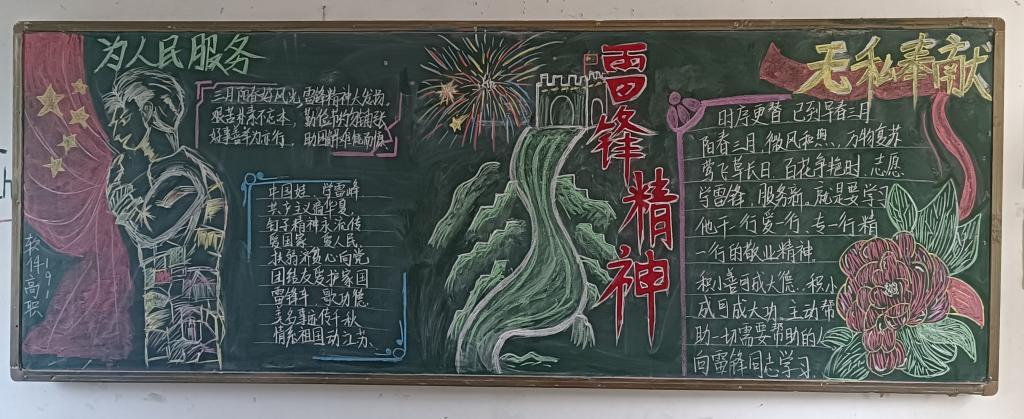 为人民服务
三月阳春好风光,雷锋精神大发扬。
艰苦朴素不忘本,勤俭节约
好善善举为
软件高职
191
中国娃、学雷锋
共产主义
钉子精神永流传
爱国家 爱人民
扶弱济贫心向党
团结友爱护家国
雷锋车、歌功德
美名事迹传千秋
情系祖国动江苏
雷锋精神
无私奉献
时序更替 已到早春三月
阳春三月,微风和煦、万物复苏
莺飞草长日、百花争艳时,志愿
学雷锋,服务新。就是要学习
他干一行爱一行、专一行精
一行的敬业精神。
积小善可成大德、积小
成可成大功、主动帮
助一切需要帮助的人
向雷锋同志学习